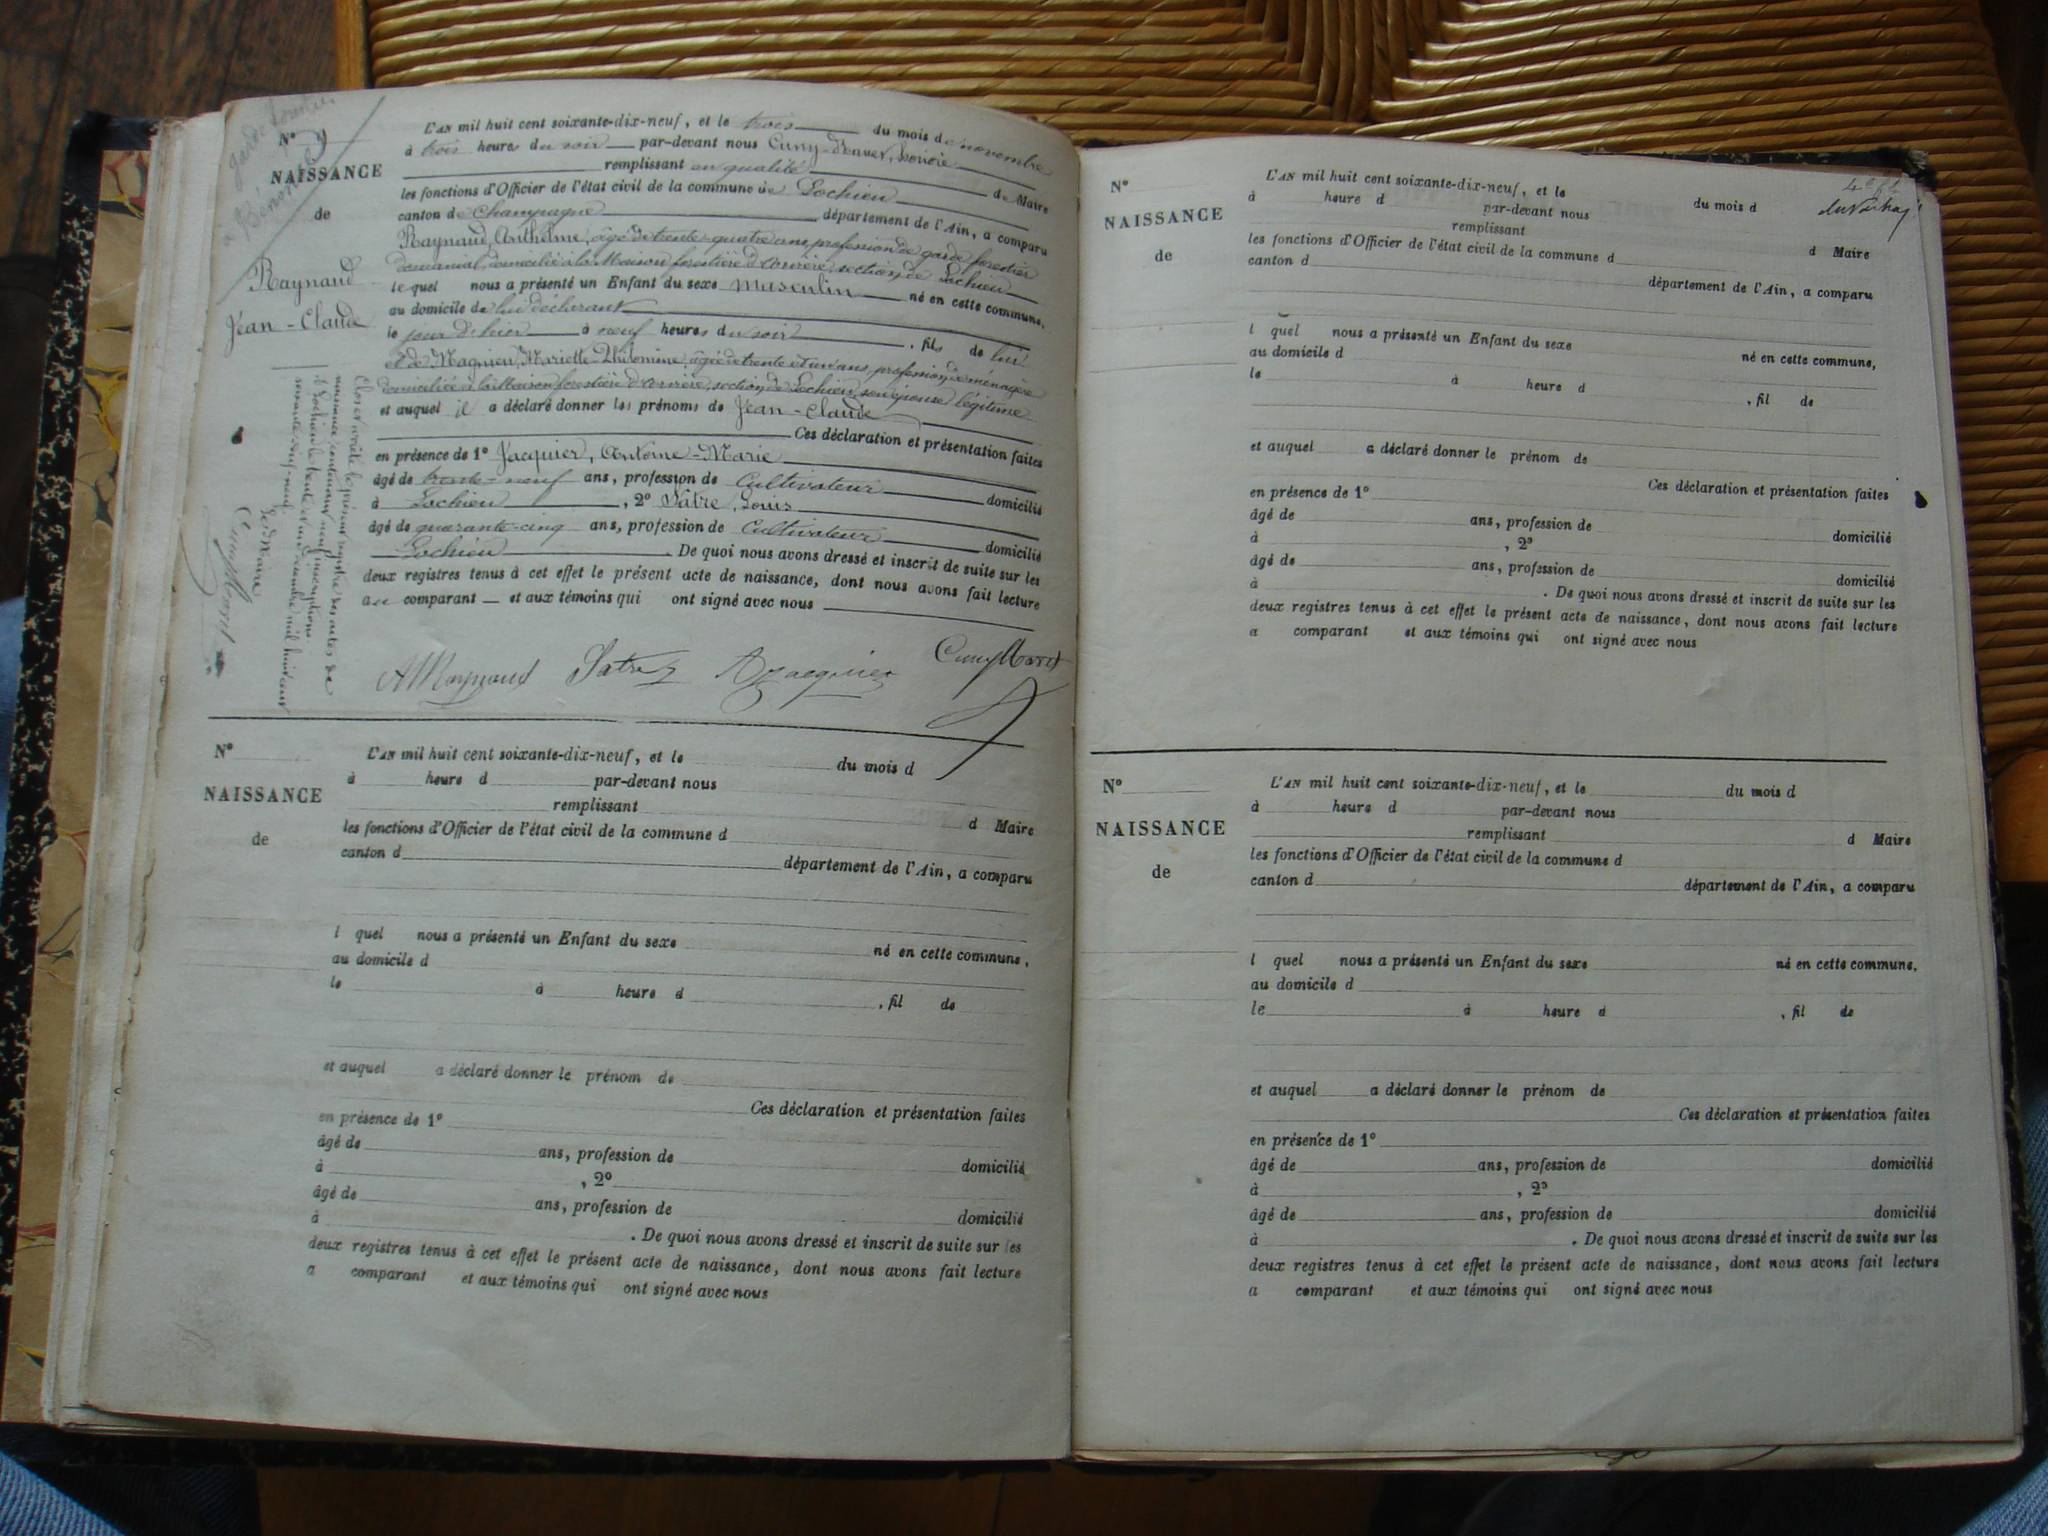 garde forestier
à Bénonces
N° 9
NAISSANCE
de
Raynaud
Jean-Claude
L'AN mil huit cent soixante-dix-neuf, et le trois du mois de novembre
à trois heures du soir par-devant nous Cuny
remplissant en qualité de Maire
les fonctions d'Officier de l'état civil de la commune de Lochieu
canton de Champagne département de l'Ain, a comparu
Raynaud, Anthelme, âgé de trente-quatre ans, profession de garde forestier
domanial, domicilié à la Maison forestière d'Arvière, section de Lochieu
lequel nous a présenté un Enfant du sexe masculin né en cette commune,
au domicile de lui déclarant
le jour d'hier à neuf heures du soir, fils de lui
et de Magnieu, Mariette Philomine, âgée de trente et un ans, profession de ménagère
domiciliée à la Maison forestière d'Arvière, section de Lochieu, son épouse légitime
et auquel il a déclaré donner les prénoms de Jean-Claude
Ces déclaration et présentation faites
en présence de 1° Jacquier, Antoine-Marie
âgé de trente-neuf ans, profession de Cultivateur domicilié
à Lochieu, 2° Satre, Louis
âgé de quarante-cinq ans, profession de Cultivateur domicilié
Lochieu. De quoi nous avons dressé et inscrit de suite sur les
deux registres tenus à cet effet le présent acte de naissance, dont nous avons fait lecture
au comparant et aux témoins qui ont signé avec nous
ARaynaud Satre Jacquier Cuny
Clos et arrêté le présent registre des actes de
naissance contenant neuf inscriptions
à Lochieu le trente et un décembre mil huit cent
soixante-dix-neuf
Le Maire
N°
NAISSANCE
de
L'AN mil huit cent soixante-dix-neuf, et le du mois d
à heure d par-devant nous
remplissant
d Maire
les fonctions d'Officier de l'état civil de la commune d
canton d département de l'Ain, a comparu
l quel nous a présenté un Enfant du sexe né en cette commune,
au domicile d
le à heure d , fil de
et auquel a déclaré donner le prénom de
Ces déclaration et présentation faites
en présence de 1°
âgé de ans, profession de domicilié
à , 2°
âgé de ans, profession de domicilié
à . De quoi nous avons dressé et inscrit de suite sur les
deux registres tenus à cet effet le présent acte de naissance, dont nous avons fait lecture
a comparant et aux témoins qui ont signé avec nous
N°
NAISSANCE
de
L'AN mil huit cent soixante-dix-neuf, et le du mois d
à heure d par-devant nous
remplissant
d Maire
les fonctions d'Officier de l'état civil de la commune d
canton d département de l'Ain, a comparu
l quel nous a présenté un Enfant du sexe né en cette commune,
au domicile d
le à heure d , fil de
et auquel a déclaré donner le prénom de
Ces déclaration et présentation faites
en présence de 1°
âgé de ans, profession de domicilié
à , 2°
âgé de ans, profession de domicilié
à . De quoi nous avons dressé et inscrit de suite sur les
deux registres tenus à cet effet le présent acte de naissance, dont nous avons fait lecture
a comparant et aux témoins qui ont signé avec nous
N°
NAISSANCE
de
L'AN mil huit cent soixante-dix-neuf, et le du mois d
à heure d par-devant nous
remplissant d Maire
les fonctions d'Officier de l'état civil de la commune d
canton d département de l'Ain, a comparu
l quel nous a présenté un Enfant du sexe né en cette commune,
au domicile d
le à heure d , fil de
et auquel a déclaré donner le prénom de
Ces déclaration et présentation faites
en présence de 1°
âgé de ans, profession de domicilié
à , 2°
âgé de ans, profession de domicilié
à . De quoi nous avons dressé et inscrit de suite sur les
deux registres tenus à cet effet le présent acte de naissance, dont nous avons fait lecture
a comparant et aux témoins qui ont signé avec nous